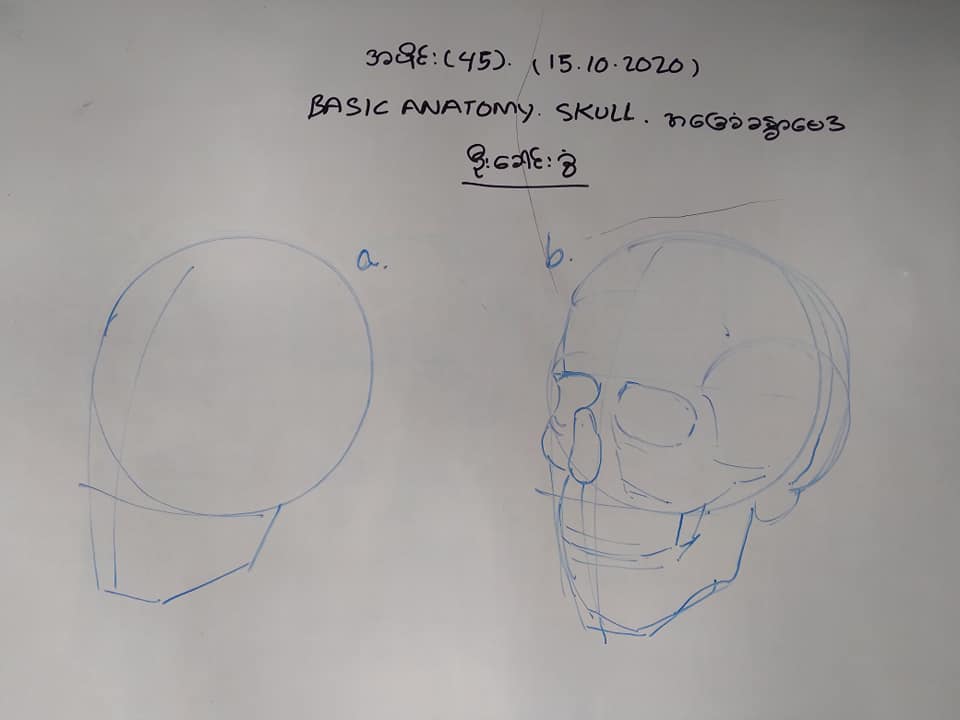 အပိုင်း (45). (15.10.2020)
BASIC ANATOMY. SKULL. အခြေခံခန္ဓာဗေဒ
ဦးခေါင်းခွံ
a.
b.